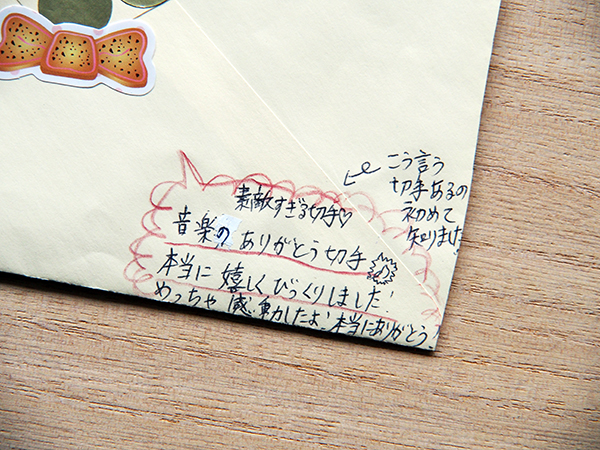 素敵すぎる切手♡
音楽の ありがとう切手
本当に 嬉しくびっくりしました!
めっちゃ 感動したよ!本当にありがとう!
こう言う
切手あるの
初めて
知りました!